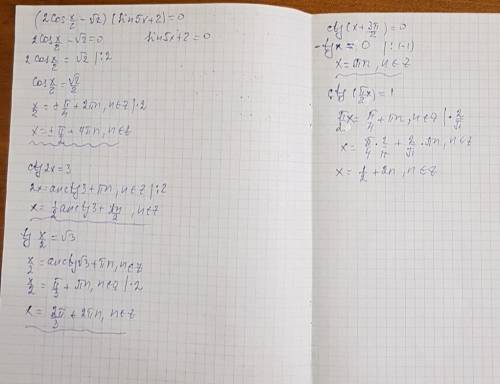 (2cos x/2 - √2) (sin5x+2)=0
2cos x/2 - √2=0   sin5x+2=0
2cos x/2 = √2 |:2
cos x/2 = √2/2
x/2 = ± π/4 + 2πn, n∈Z |·2
x = ± π/2 + 4πn, n∈Z
ctg2x=3
2x=arcctg3+πn, n∈Z |:2
x= 1/2 arcctg3+ πn/2, n∈Z
tg x/2 = √3
x/2 = arctg√3+πn, n∈Z
x/2 = π/3 + πn, n∈Z |·2
x = 2π/3 + 2πn, n∈Z
ctg(x + 3π/2)=0
-tgx = 0 |:(-1)
x=πn, n∈Z
ctg(π/2 x)=1
π/2 x= π/4 +πn, n∈Z |· 2/π
x= π/4 · 2/π + 2/π · πn, n∈Z
x= 1/2 +2n, n∈Z